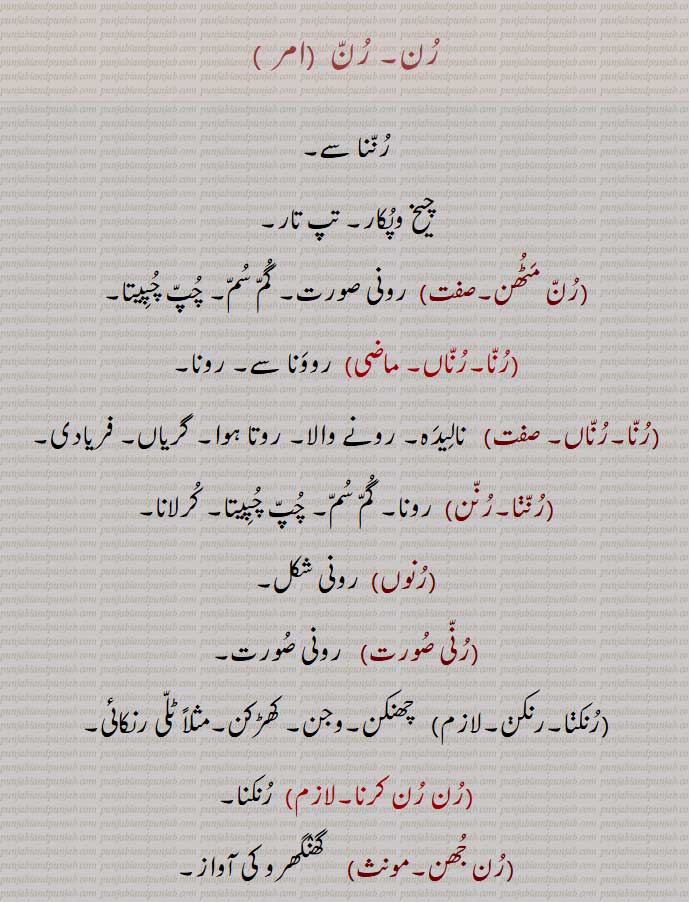 رُن۔ رُنّ (امر)
رُنّنا سے۔
چیخ وپُکار۔ تپ تار۔
(رُنّ مَٹُھن۔صفت) رونی صورت۔ گُمّ سُمّ۔ چُپّ چُپِیتا۔
(رُنّا۔رُنّاں۔ ماضی) روؤنا سے۔ رونا۔
(رُنّا۔رُنّاں۔ صفت) نالِیدَہ۔ رونے والا۔ روتا ہوا۔ گریاں۔ فریادی۔
(رُنّݨا۔رُنّݨ) رونا۔ گُمّ سُمّ۔ چُپّ چُپِیتا۔ کُرلانا۔
(رُنوں) رونی شکل۔
(رُنّی صُورت) رونی صُورت۔
(رُنکݨا۔رنکݨ۔لازم) چھنکن۔وجن۔ کھڑکن۔مثلاً ٹلّی رنکائی۔
(رُن رُن کرنا۔لازم) رُنکنا۔
(رُن جُھن۔مونث) گھُنگھرو کی آواز۔